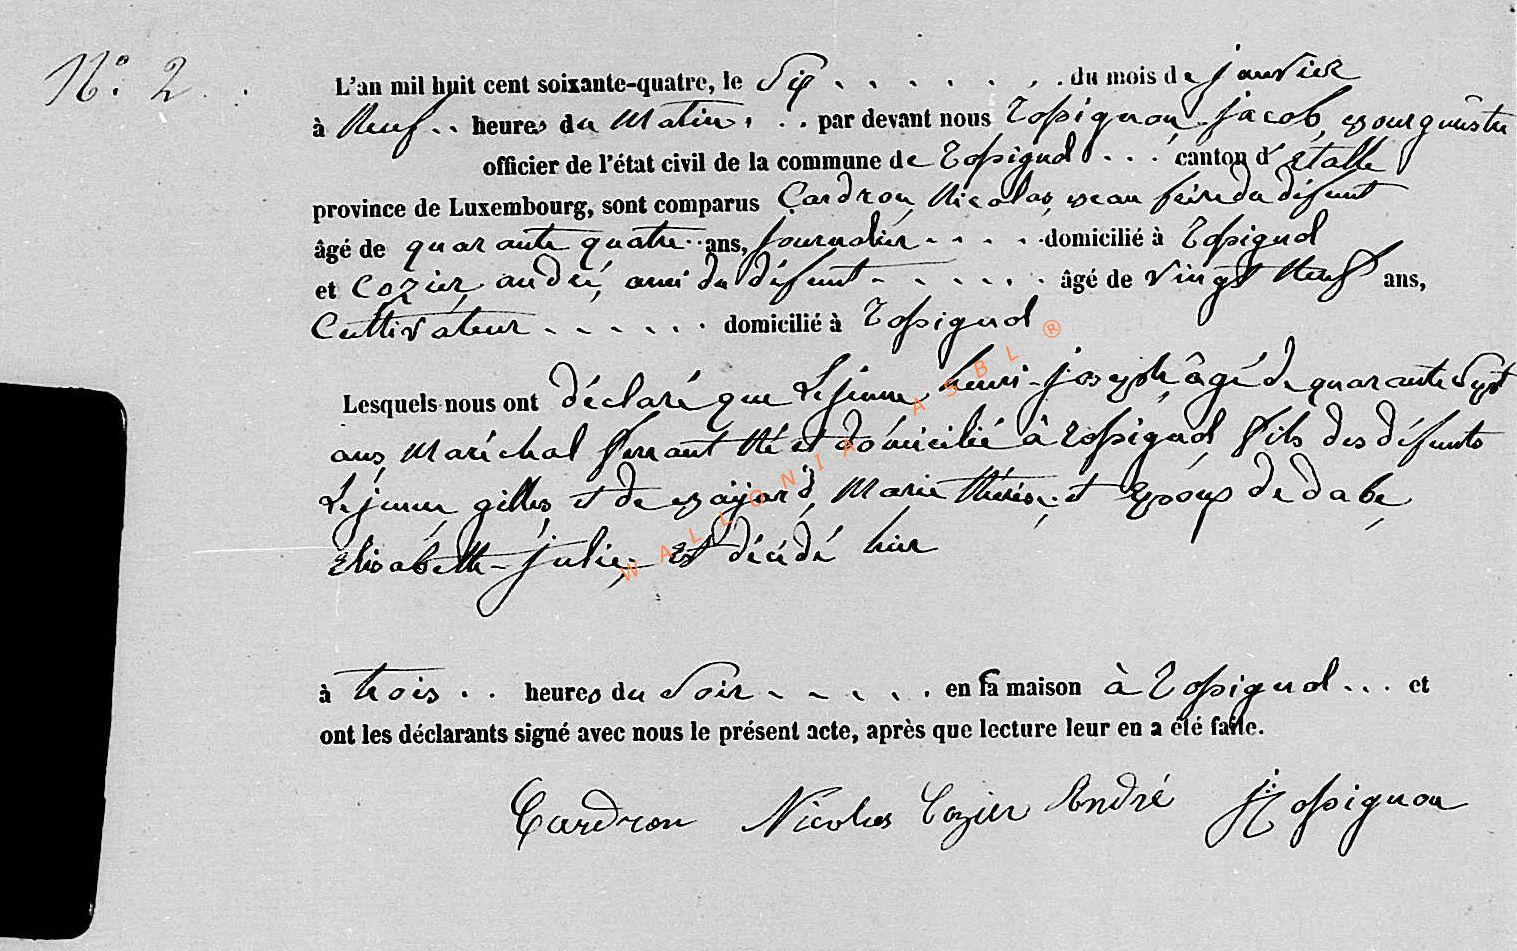 N° 2
L'an mil huit cent soixante-quatre, le Six du mois de janvier
à Neuf heures du Matin, par devant nous Rossignon, jacob, Bourgmestre
officier de l'état civil de la commune de Rossignol canton d'étalle
province de Luxembourg, sont comparus Cardron, Nicolas, Beau frère du défunt
âgé de quarante quatre ans, journalier domicilié à Rossignol
et Cozier, andré, ami du défunt âgé de vingt Neuf ans,
Cultivateur domicilié à Rossignol
Lesquels nous ont déclaré que Lejeune, henri-joseph, âgé de quarante Sept
ans, Maréchal ferrant Né et domicilié à Rossignol, fils des défunts
Lejeune, gilles, et de Bajard, Marie thérèse, et Epoux de dabe,
Elisabeth-julie, Est décédé hier
à trois heures du Soir en sa maison à Rossignol et
ont les déclarants signé avec nous le présent acte, après que lecture leur en a été faite.
Cardron Nicolas Cozier André J Rossignon
WALLONIA ASBL ®